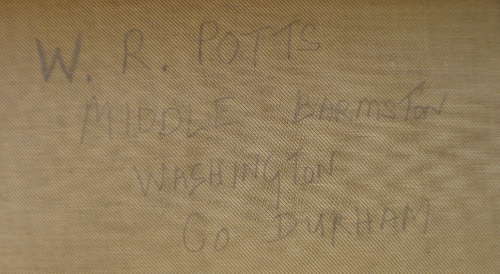 W. R. POTTS
MIDDLE BARMSTON
WASHINGTON
Co DURHAM